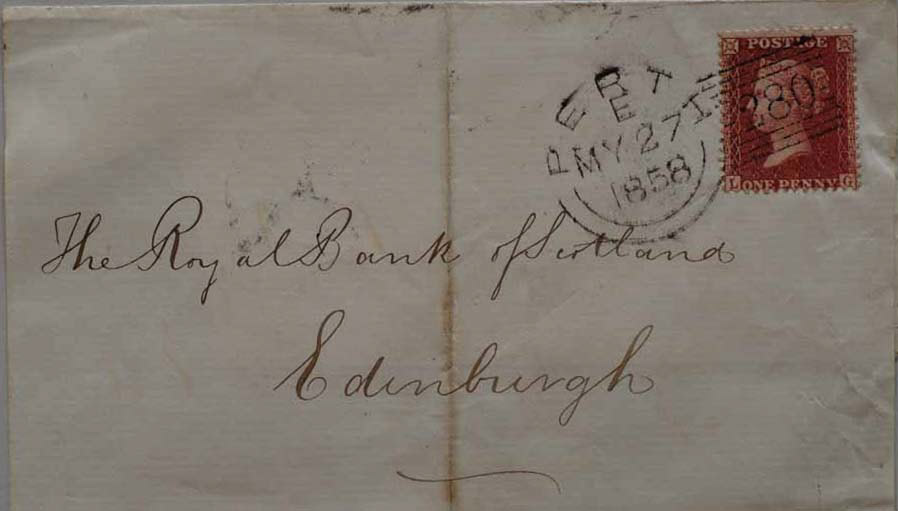 POSTAGE
280
L ONE PENNY G
PERTH
E
MY 27
1858
The Royal Bank of Scotland
Edinburgh